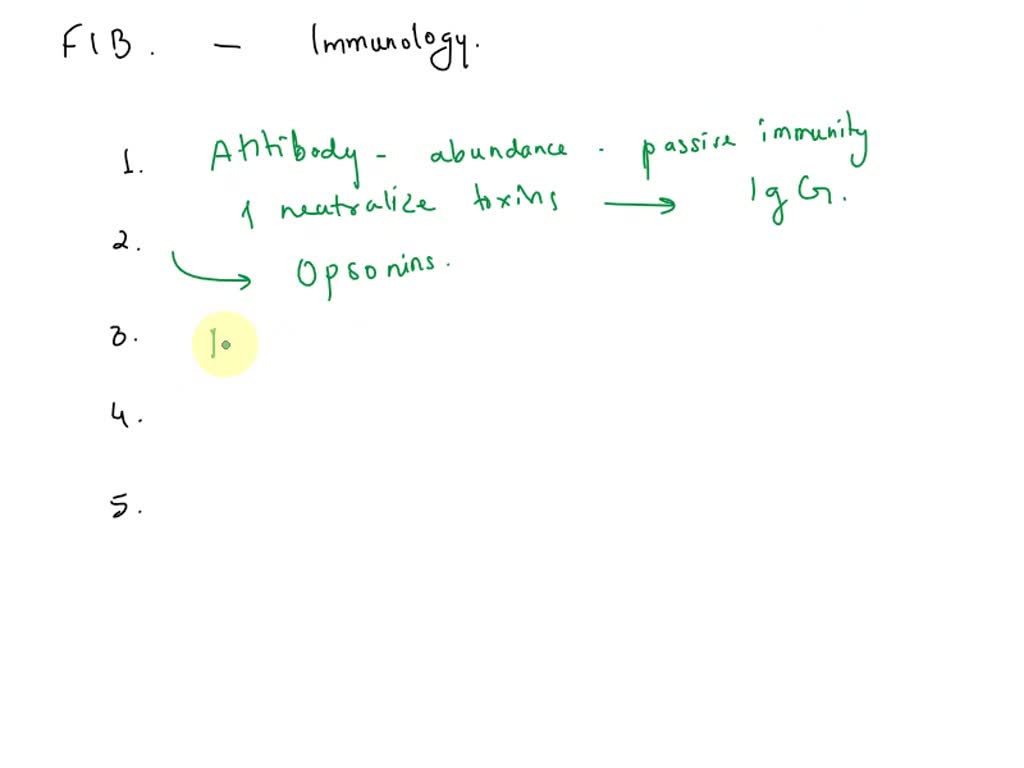 FIB. - Immunology.
1. Antibody - abundance . passive immunity
& neutralize toxins → IgG.
2. → Opsonins.
3. I
4.
5.